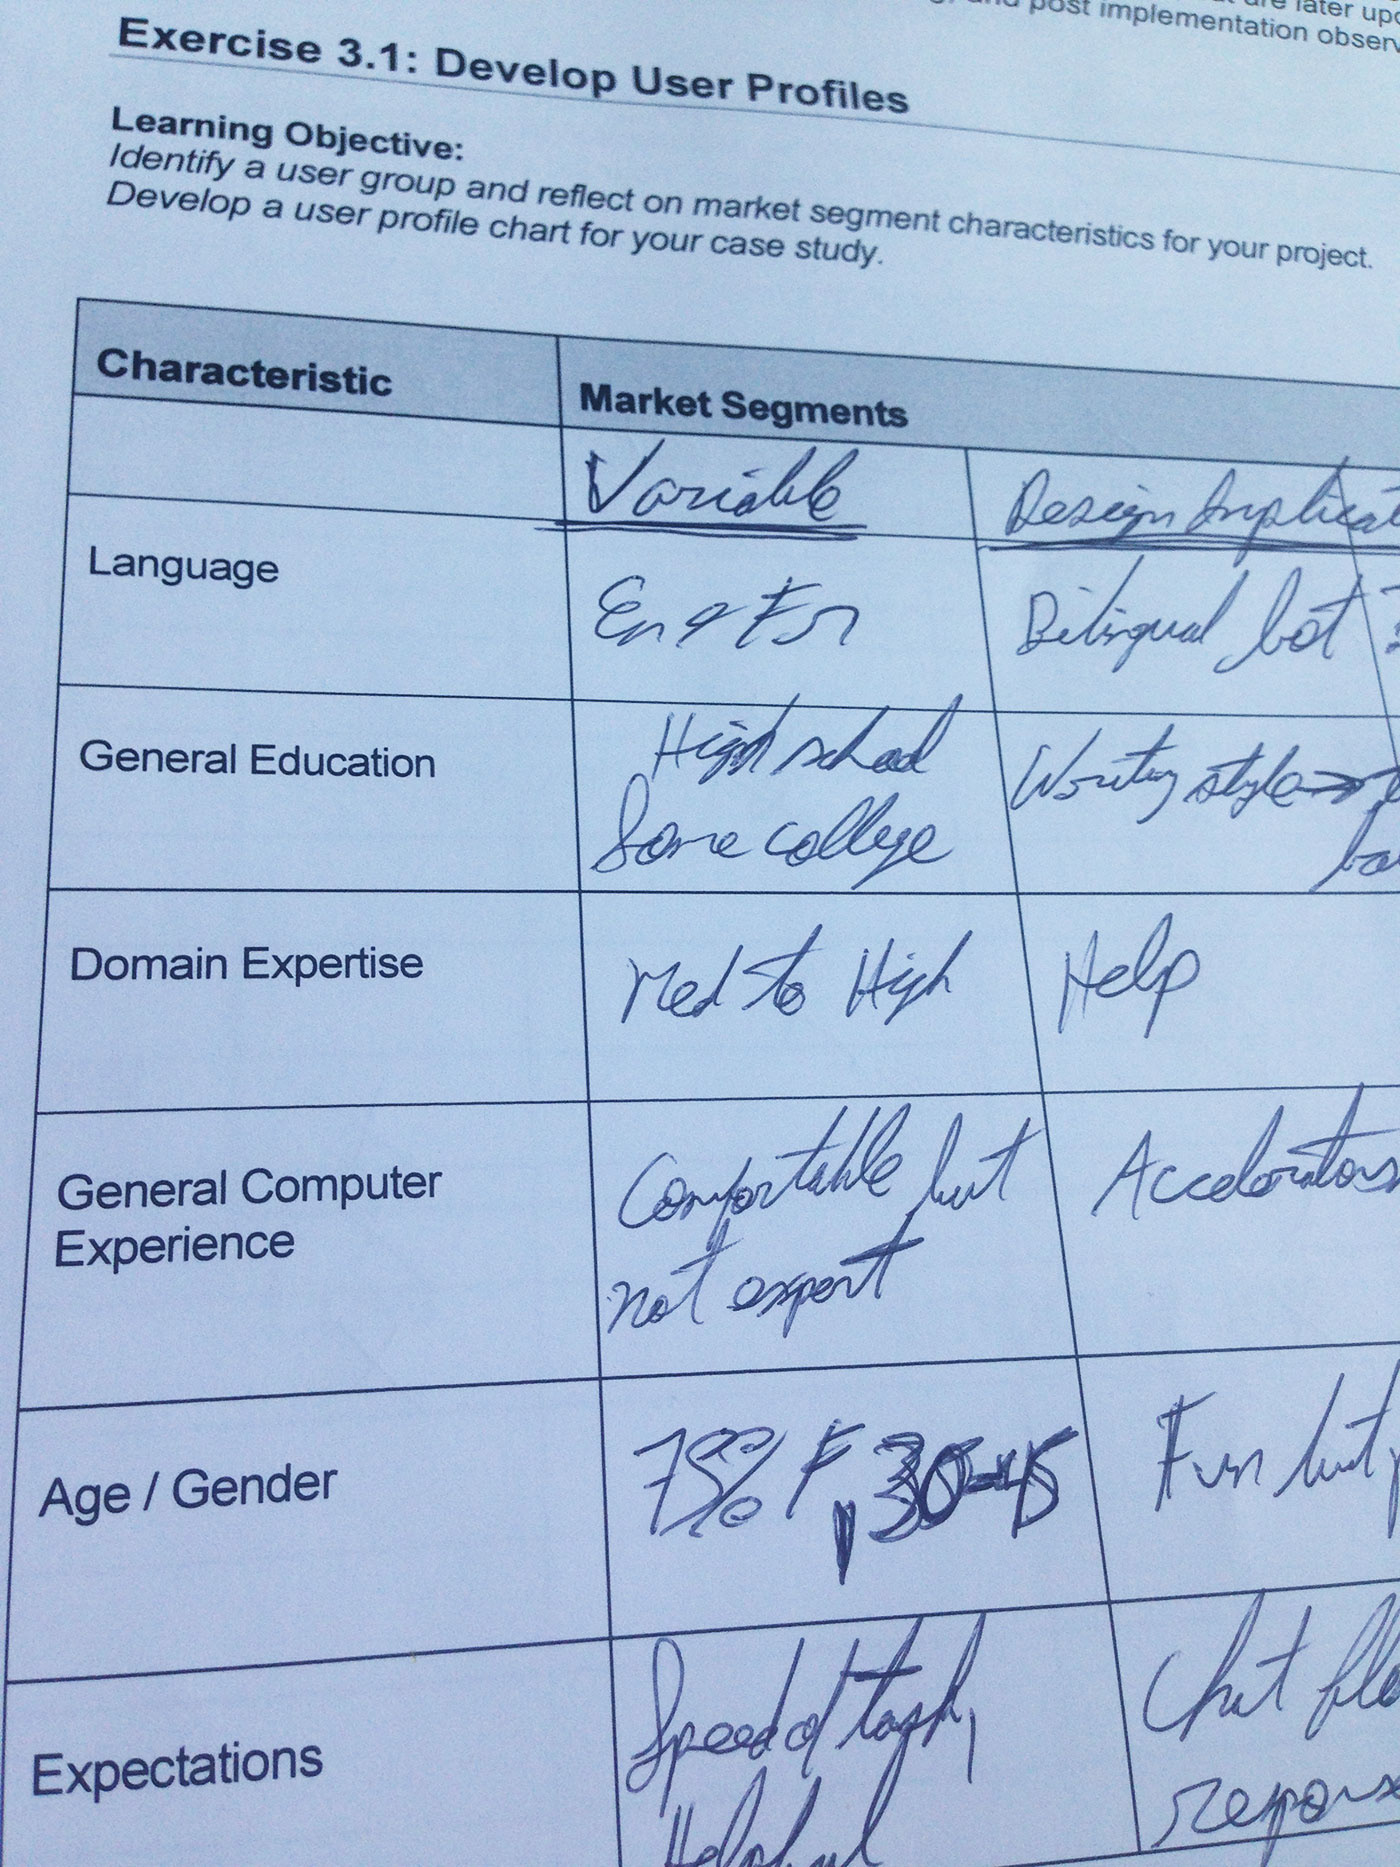 are later
and post implementation
Exercise 3.1: Develop User Profiles
Learning Objective:
Identify a user group and reflect on market segment characteristics for your project.
Develop a user profile chart for your case study.
Characteristic Market Segments
Variable Design
Language Eng & Fr Bilingual bot
General Education High school Writing style →
Some college
Domain Expertise Med to High Help
General Computer Comfortable but Accelerators
Experience not expert
Age / Gender 75% F, 30-45 Fun but
Expectations Speed of task, Chat
Helpful